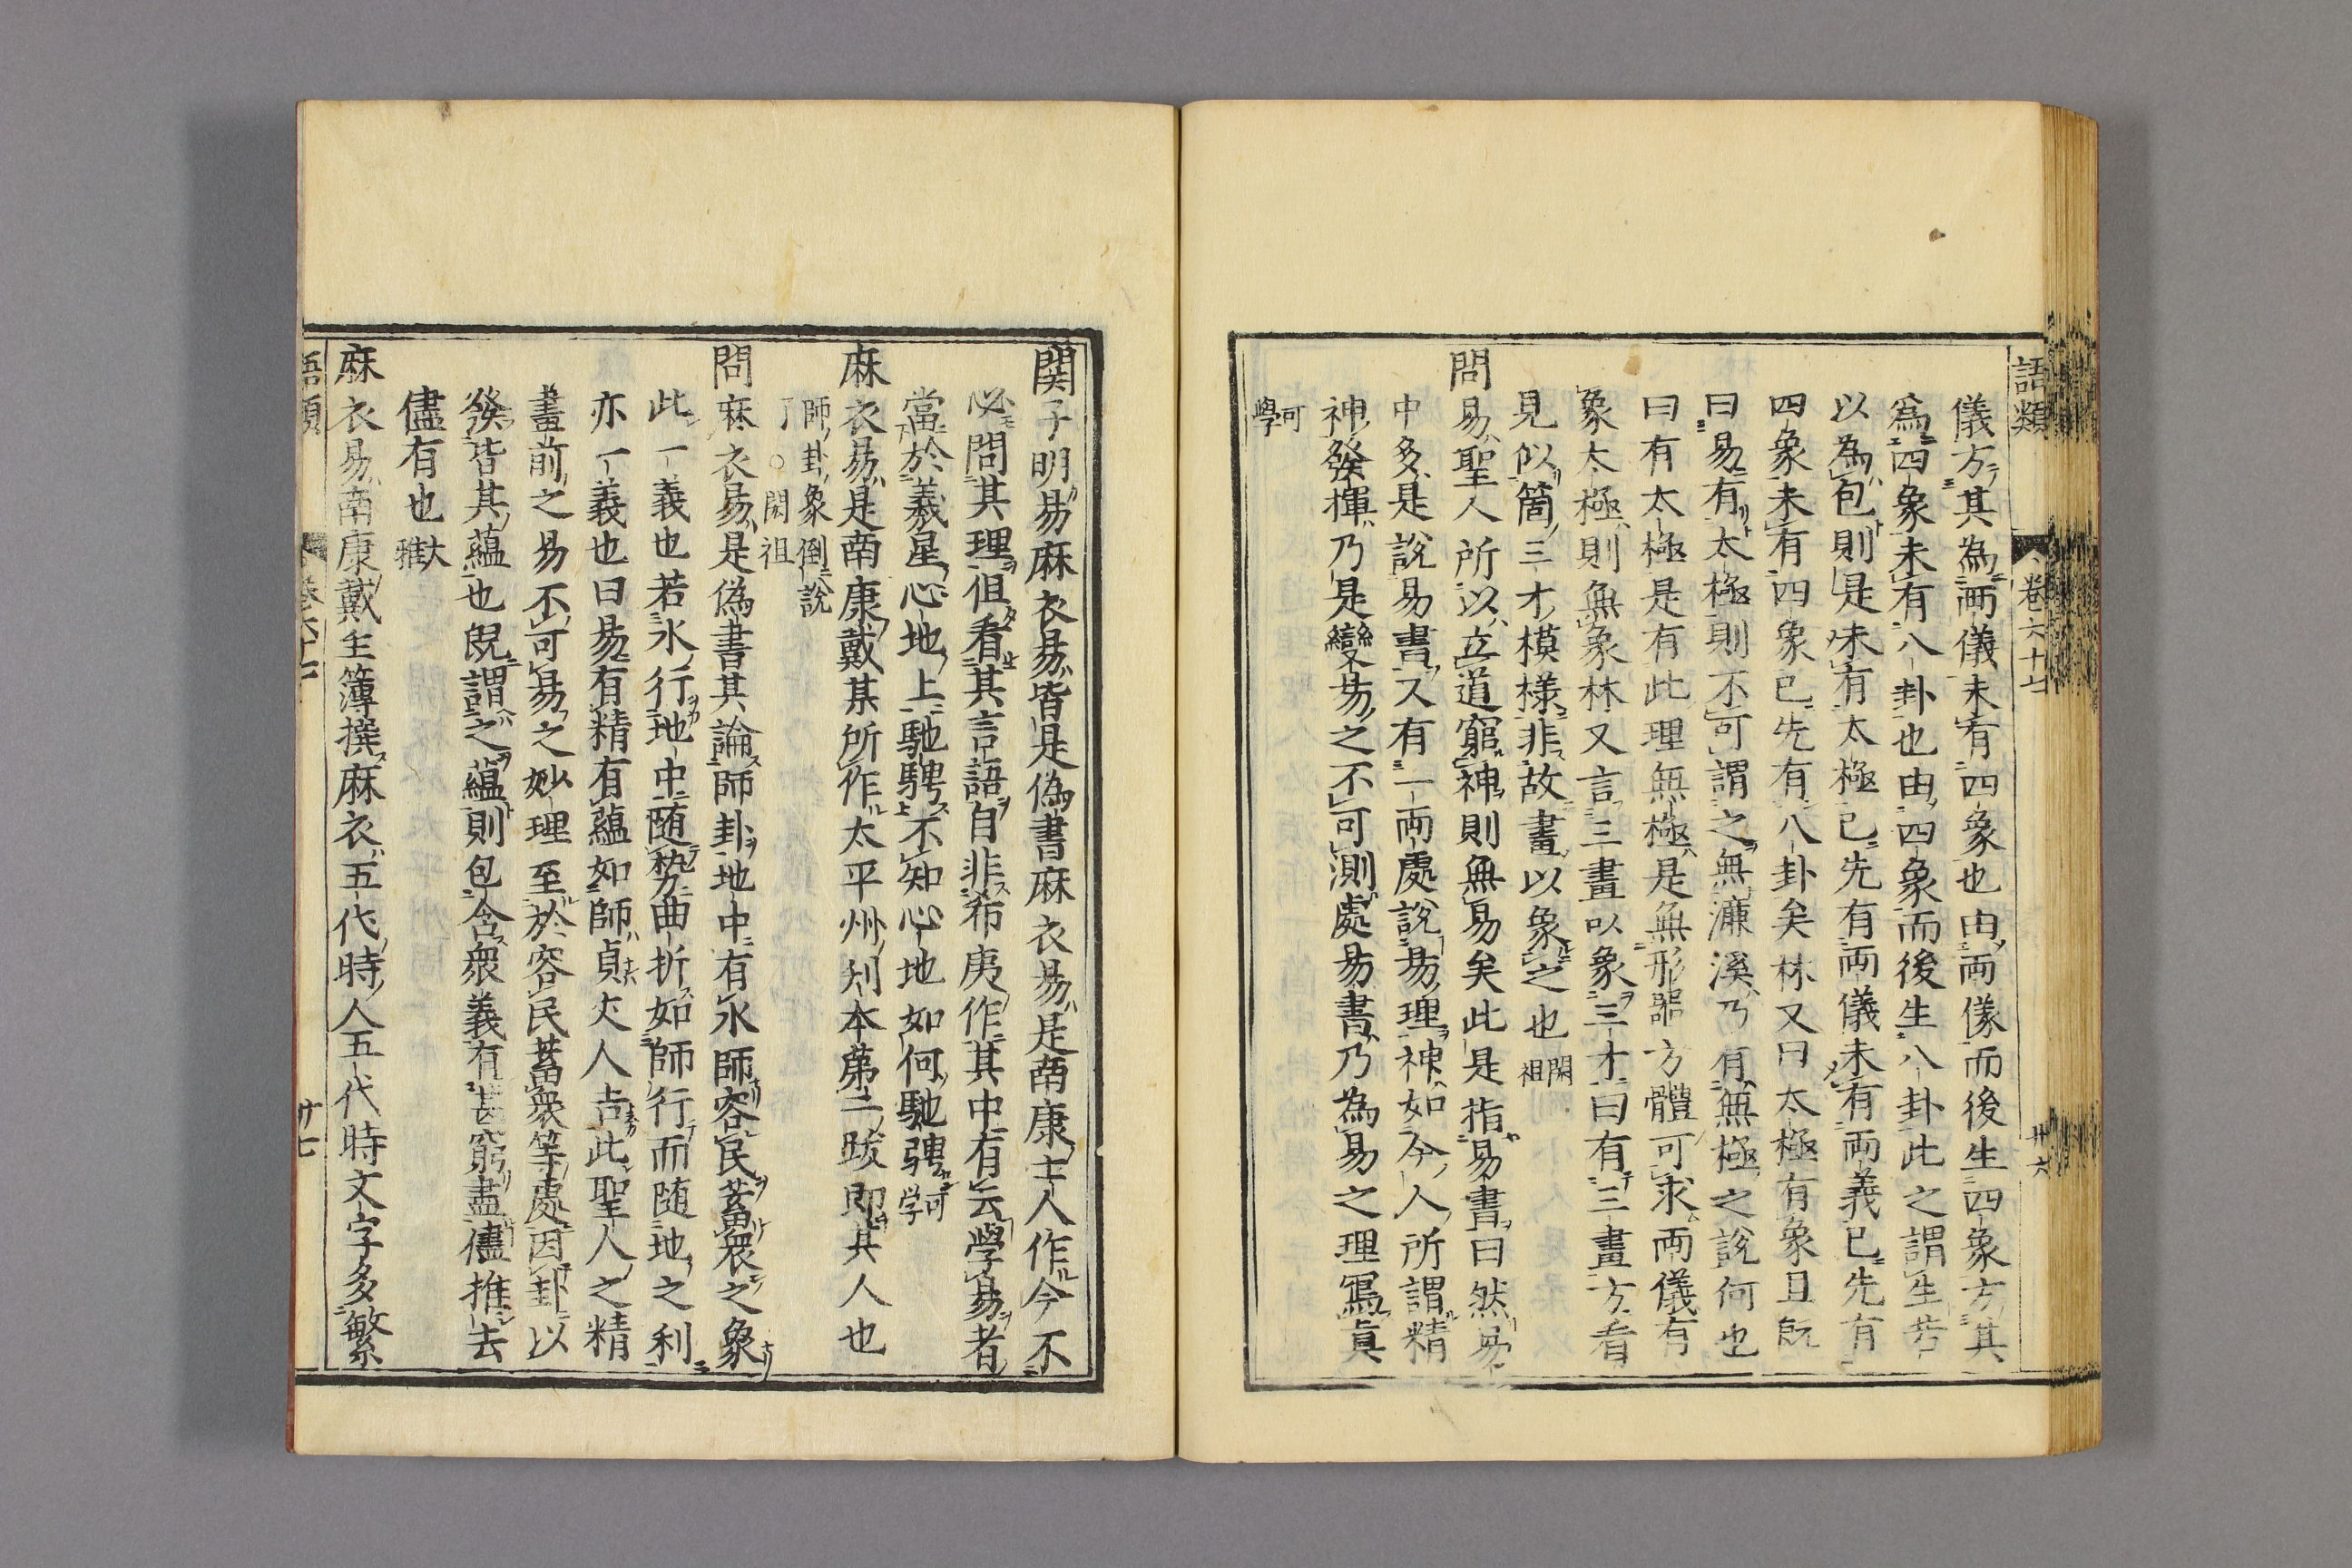 語類 卷六十七 卅六
儀方其為兩儀未有四象也由兩儀而後生四象方其
為四象未有八卦也由四象而後生八卦此之謂生若
以為包則是未有太極已先有兩儀未有兩義已先有
四象未有四象已先有八卦矣林又曰太極有象且既
曰易有太極則不可謂之無濂溪乃有無極之說何也
曰有太極是有此理無極是無形器方體可求兩儀有
象太極則無象林又言三畫以象三才曰有三畫方看
見似箇三才模樣非故畫以象之也閎祖
問易聖人所以立道窮神則無易矣此是指易書曰然易
中多是說易書又有一兩處說易理神如今人所謂精
神發揮乃是變易之不可測處易書乃為易之理寫真
可學
關子明易麻衣易皆是偽書麻衣易是南康士人作今不
必問其理但看其言語自非希夷作其中有云學易者
當於羲皇心地上馳騁不知心地如何馳騁可学
麻衣易是南康戴某所作太平州刋本第二跋即其人也
師卦象倒說
了○閎祖
問麻衣易是偽書其論師卦地中有水師容民蓄衆之象
此一義也若水行地中随勢曲折如師行而随地之利
亦一義也曰易有精有蘊如師貞丈人吉此聖人之精
畫前之易不可易之妙理至於容民蓄衆等處因卦以
發皆其蘊也既謂之蘊則包含衆義有甚窮盡儘推去
儘有也大雅
麻衣易南康戴主簿撰麻衣五代時人五代時文字多繁
語類 卷六十七 卅七